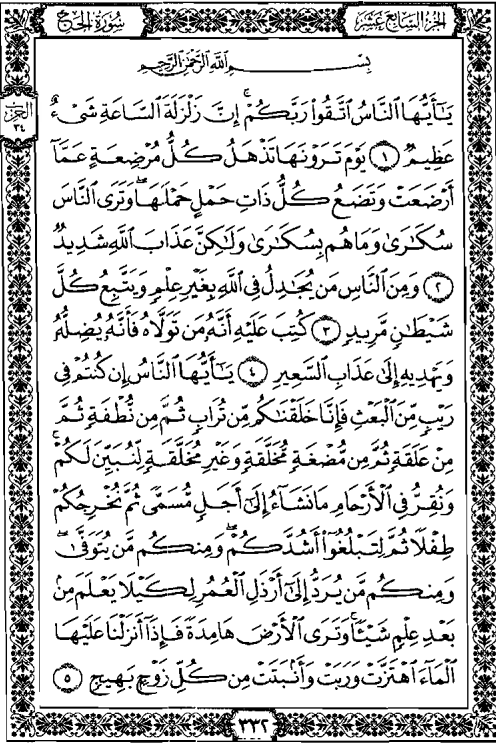 الجزء السابع عشر
سورة الحج
بِسْمِ ٱللَّهِ ٱلرَّحْمَٰنِ ٱلرَّحِيمِ
الحزب
٣٤
يَٰٓأَيُّهَا ٱلنَّاسُ ٱتَّقُوا۟ رَبَّكُمْ ۚ إِنَّ زَلْزَلَةَ ٱلسَّاعَةِ شَىْءٌ
عَظِيمٌ ١ يَوْمَ تَرَوْنَهَا تَذْهَلُ كُلُّ مُرْضِعَةٍ عَمَّآ
أَرْضَعَتْ وَتَضَعُ كُلُّ ذَاتِ حَمْلٍ حَمْلَهَا وَتَرَى ٱلنَّاسَ
سُكَٰرَىٰ وَمَا هُم بِسُكَٰرَىٰ وَلَٰكِنَّ عَذَابَ ٱللَّهِ شَدِيدٌ
٢ وَمِنَ ٱلنَّاسِ مَن يُجَٰدِلُ فِى ٱللَّهِ بِغَيْرِ عِلْمٍ وَيَتَّبِعُ كُلَّ
شَيْطَٰنٍ مَّرِيدٍ ٣ كُتِبَ عَلَيْهِ أَنَّهُۥ مَن تَوَلَّاهُ فَأَنَّهُۥ يُضِلُّهُۥ
وَيَهْدِيهِ إِلَىٰ عَذَابِ ٱلسَّعِيرِ ٤ يَٰٓأَيُّهَا ٱلنَّاسُ إِن كُنتُمْ فِى
رَيْبٍ مِّنَ ٱلْبَعْثِ فَإِنَّا خَلَقْنَٰكُم مِّن تُرَابٍ ثُمَّ مِن نُّطْفَةٍ ثُمَّ
مِنْ عَلَقَةٍ ثُمَّ مِن مُّضْغَةٍ مُّخَلَّقَةٍ وَغَيْرِ مُخَلَّقَةٍ لِّنُبَيِّنَ لَكُمْ ۚ
وَنُقِرُّ فِى ٱلْأَرْحَامِ مَا نَشَآءُ إِلَىٰٓ أَجَلٍ مُّسَمًّى ثُمَّ نُخْرِجُكُمْ
طِفْلًا ثُمَّ لِتَبْلُغُوٓا۟ أَشُدَّكُمْ ۖ وَمِنكُم مَّن يُتَوَفَّىٰ
وَمِنكُم مَّن يُرَدُّ إِلَىٰٓ أَرْذَلِ ٱلْعُمُرِ لِكَيْلَا يَعْلَمَ مِنۢ
بَعْدِ عِلْمٍ شَيْـًٔا ۚ وَتَرَى ٱلْأَرْضَ هَامِدَةً فَإِذَآ أَنزَلْنَا عَلَيْهَا
ٱلْمَآءَ ٱهْتَزَّتْ وَرَبَتْ وَأَنۢبَتَتْ مِن كُلِّ زَوْجٍۭ بَهِيجٍ ٥
٣٣٢